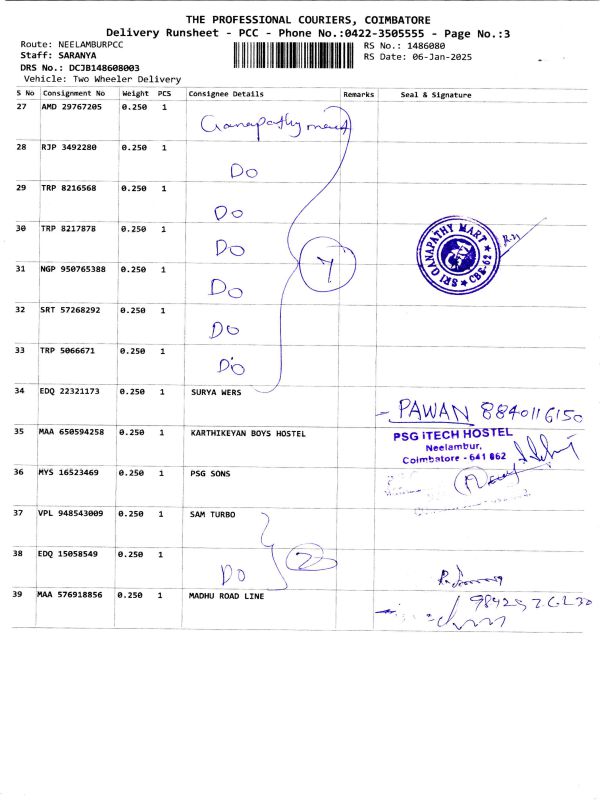 THE PROFESSIONAL COURIERS, COIMBATORE
Delivery Runsheet - PCC - Phone No.:0422-3505555 - Page No.:3
Route: NEELAMBURPCC
RS No.: 1486080
Staff: SARANYA
RS Date: 06-Jan-2025
DRS No.: DCJB148608003
Vehicle: Two Wheeler Delivery
S No Consignment No Weight PCS Consignee Details Remarks Seal & Signature
27 AMD 29767205 0.250 1 Ganapathy mart
28 RJP 3492280 0.250 1 Do
29 TRP 8216568 0.250 1 Do
30 TRP 8217878 0.250 1 Do
31 NGP 950765388 0.250 1 Do
32 SRT 57268292 0.250 1 Do
33 TRP 5066671 0.250 1 Do
7
SRI GANAPATHY MART
CBE-62
34 EDQ 22321173 0.250 1 SURYA WERS
PAWAN 8840116150
35 MAA 650594258 0.250 1 KARTHIKEYAN BOYS HOSTEL
PSG iTECH HOSTEL
Neelambur,
Coimbatore - 641 062
36 MYS 16523469 0.250 1 PSG SONS
37 VPL 948543009 0.250 1 SAM TURBO
38 EDQ 15058549 0.250 1 Do
2
39 MAA 576918856 0.250 1 MADHU ROAD LINE